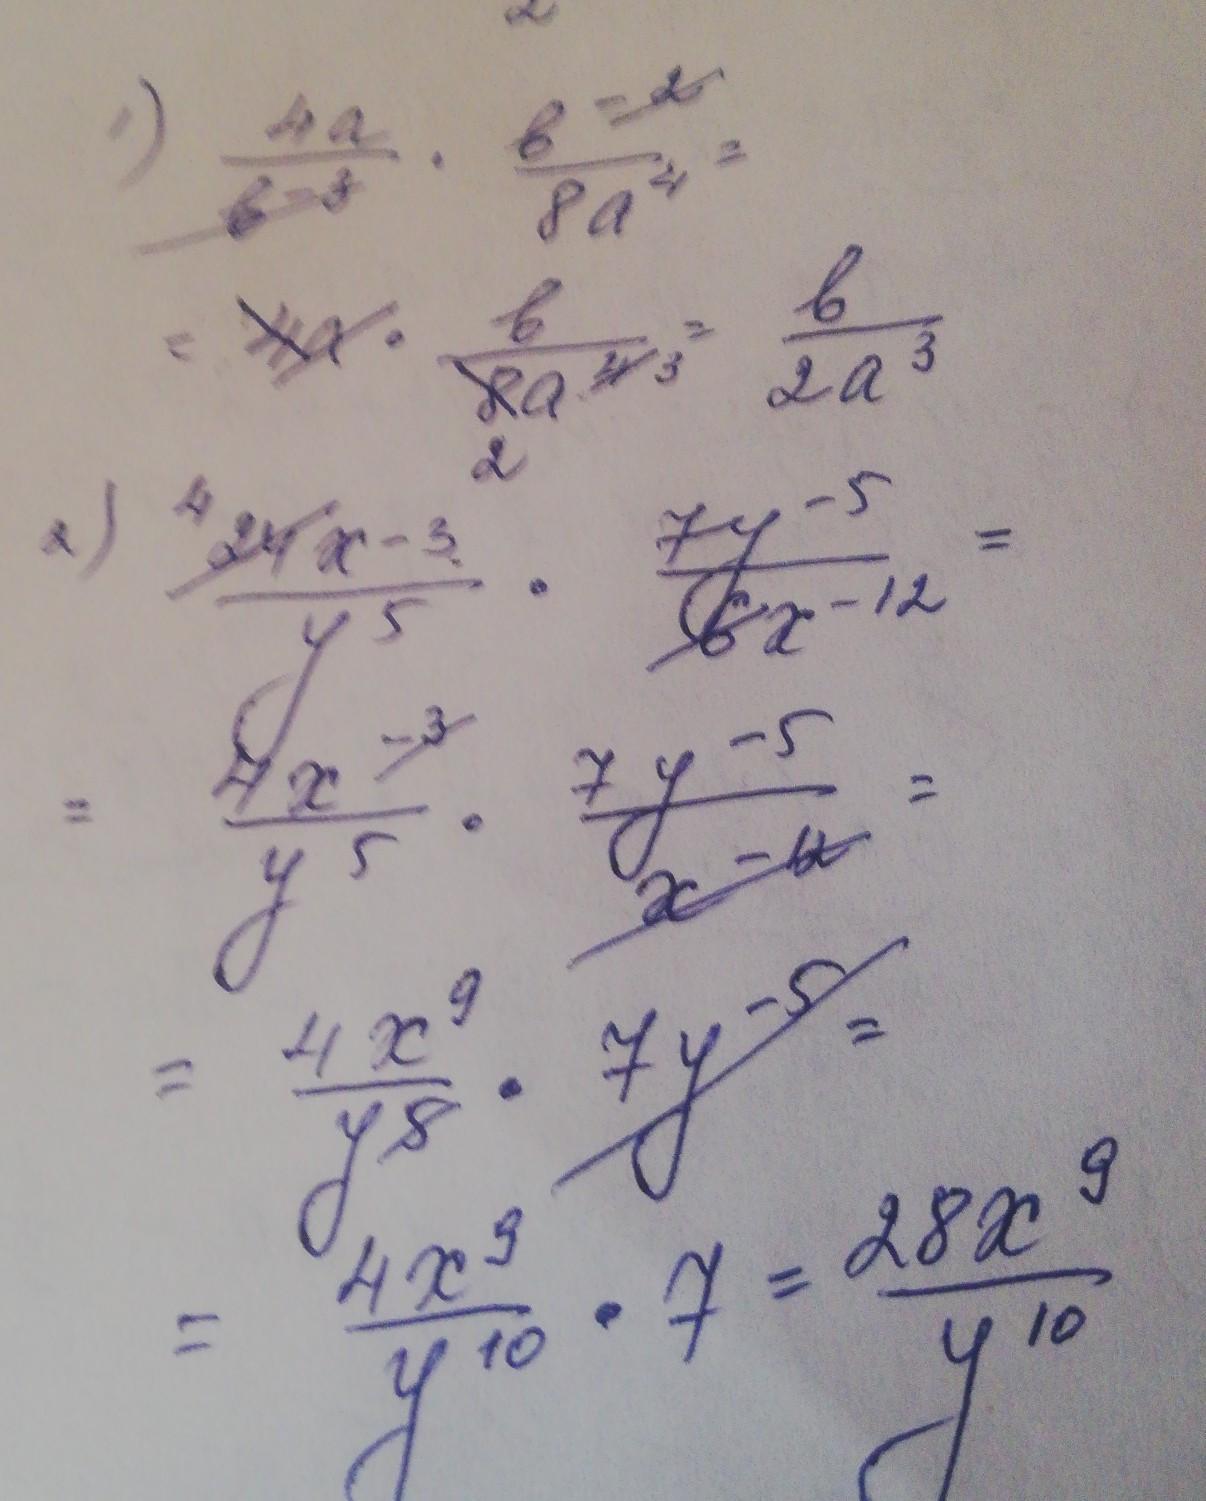 2
1) 4a/b⁻³ · b⁻²/8a⁴ =
= 4a · b/8a⁴ 3 = b/2a³
2
2) 4 24x⁻³/y⁵ · 7y⁻⁵/6x⁻¹² =
= 4x⁻³/y⁵ · 7y⁻⁵/x⁻¹² =
= 4x⁹/y⁵ · 7y⁻⁵ =
= 4x⁹/y¹⁰ · 7 = 28x⁹/y¹⁰